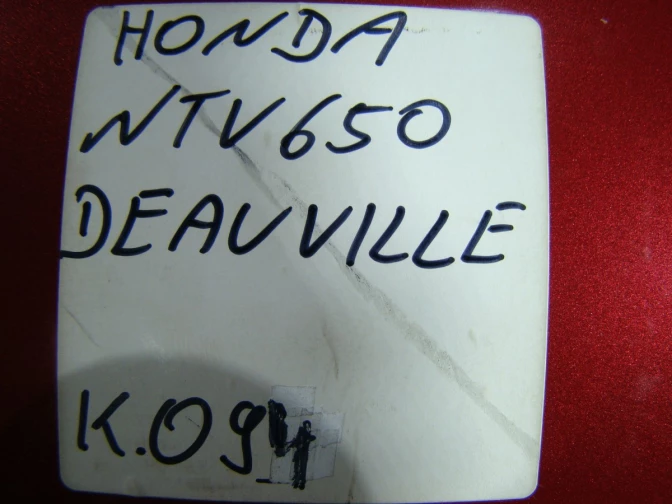 HONDA
NTV650
DEAUVILLE
K.094